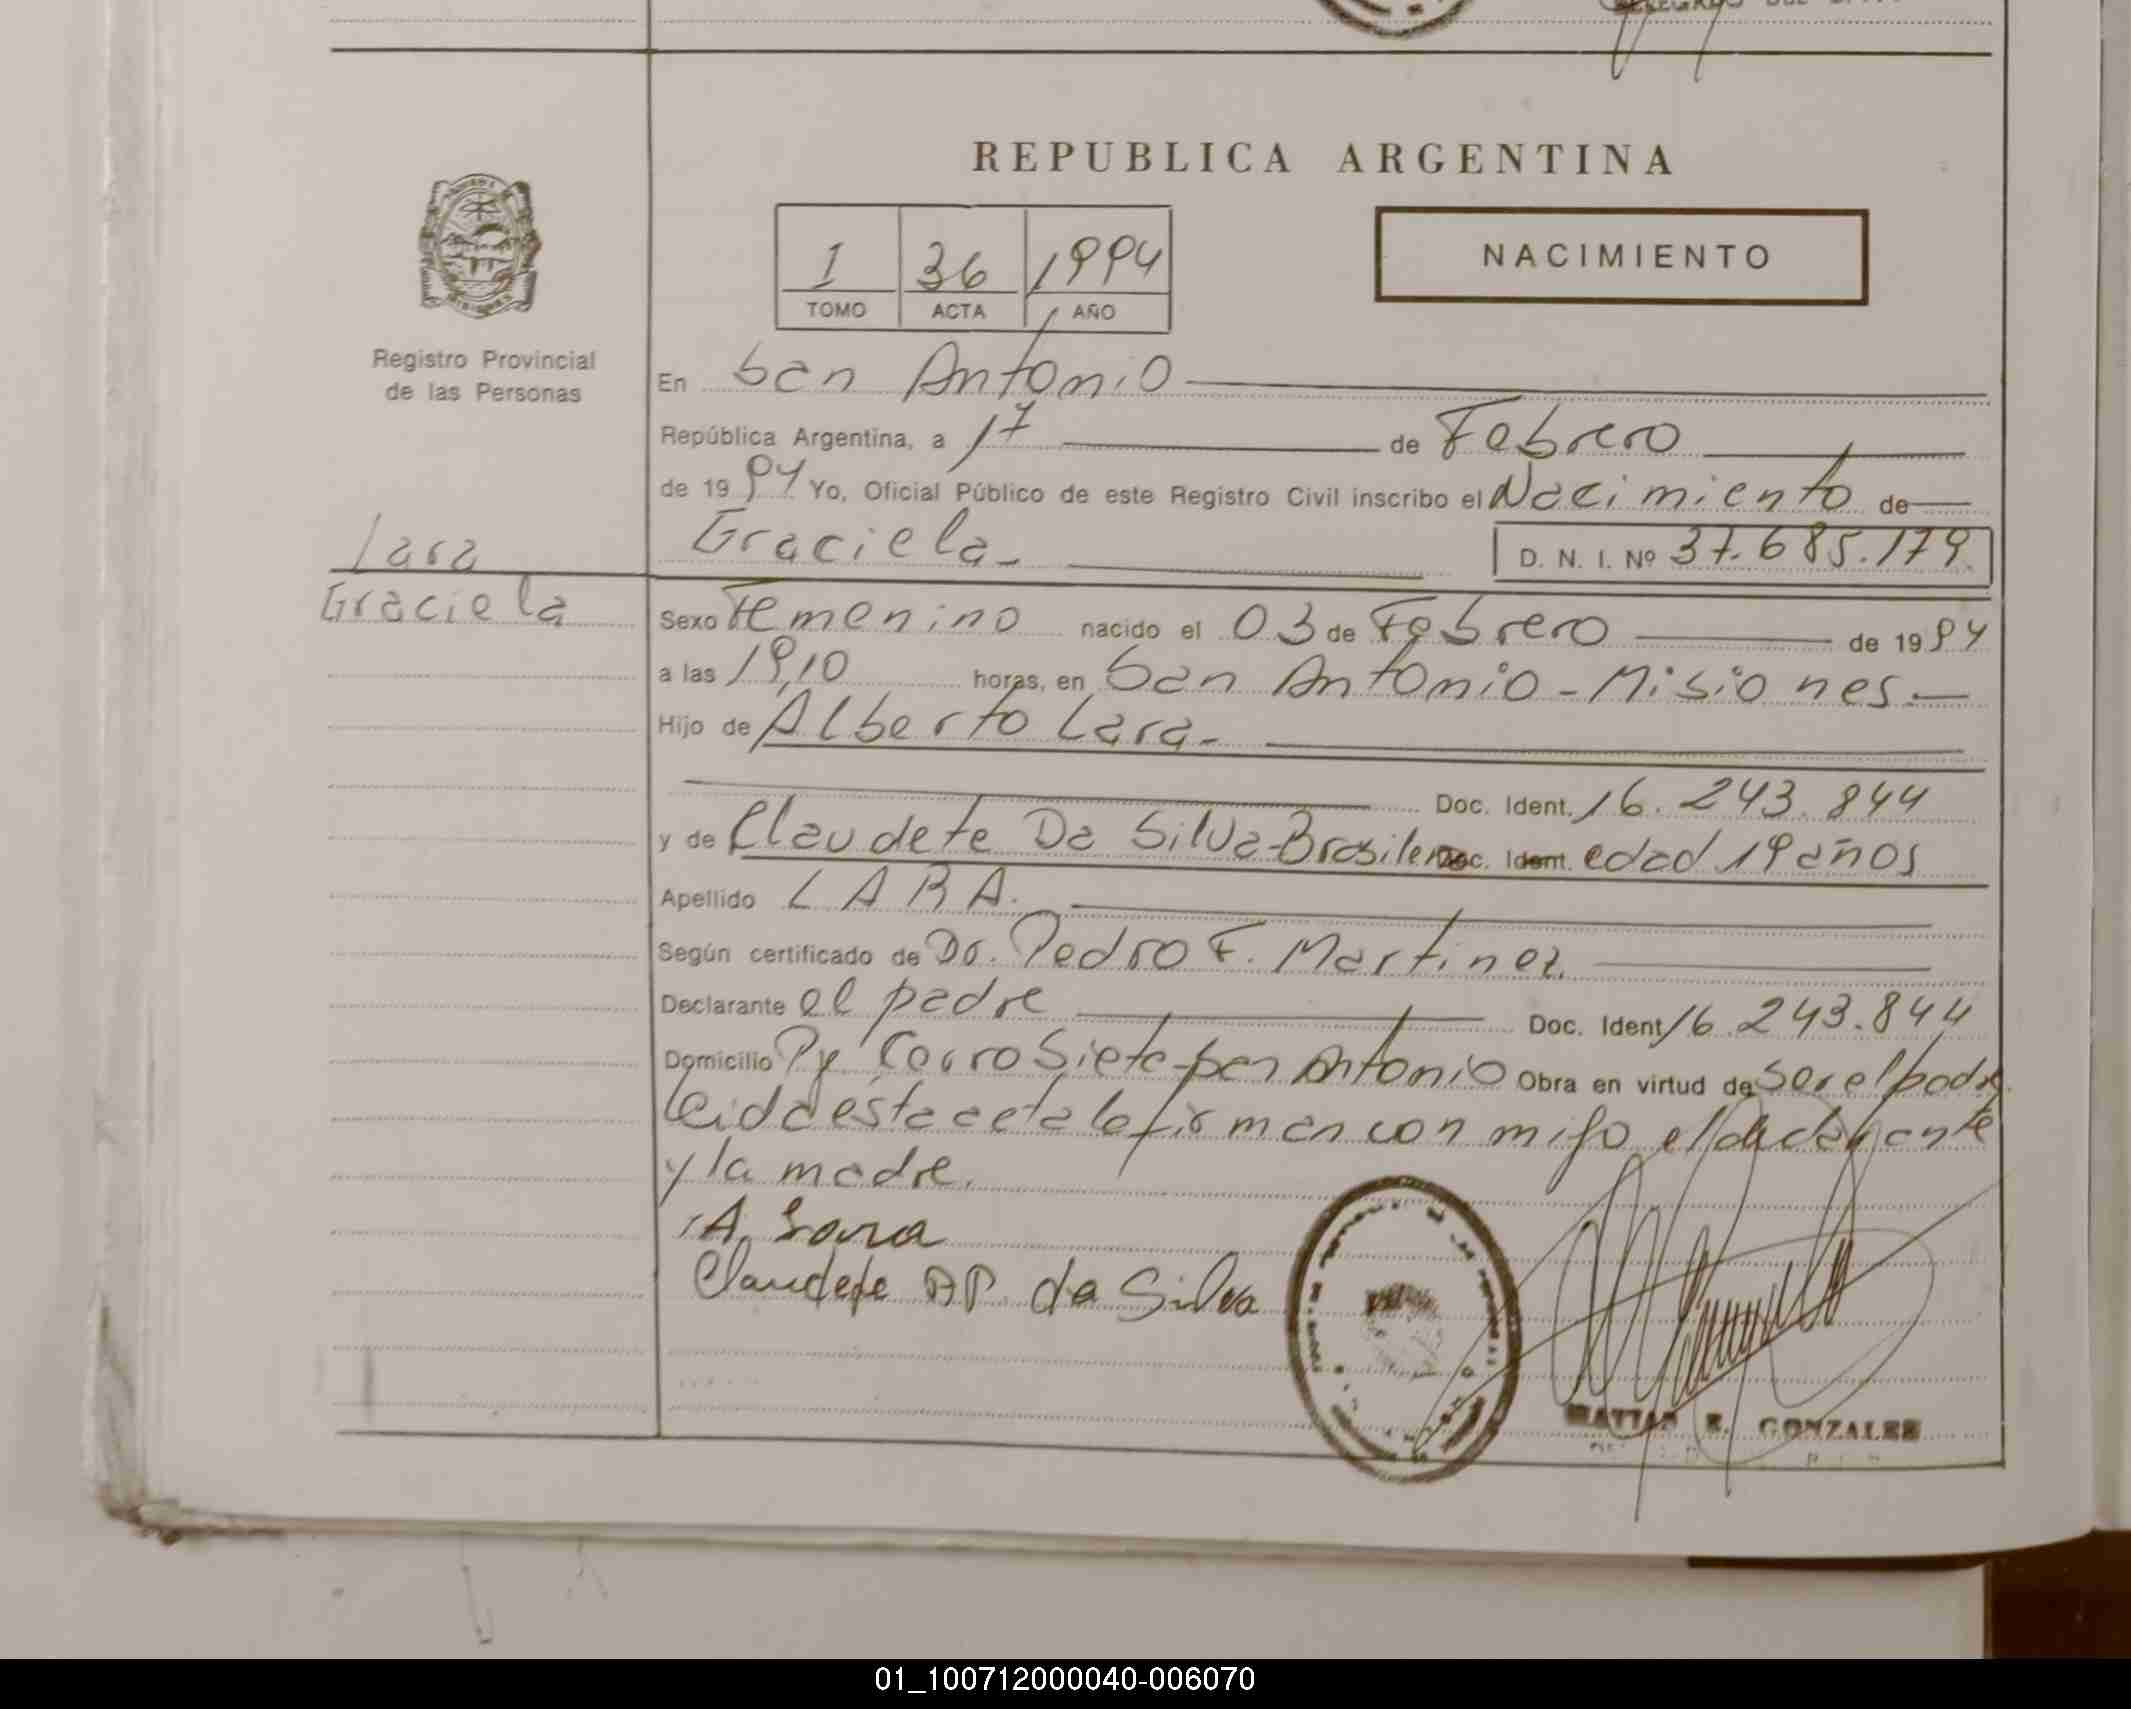 REPUBLICA ARGENTINA
NACIMIENTO
1 36 1994
TOMO ACTA AÑO
Registro Provincial
de las Personas
En San Antonio
República Argentina, a 17 de Febrero
de 1994 Yo, Oficial Público de este Registro Civil inscribo el Nacimiento de
Graciela D. N. I. Nº 37.685.179
Lara
Graciela
Sexo Femenino nacido el 03 de Febrero de 1994
a las 19,10 horas, en San Antonio - Misiones.
Hijo de Alberto Lara
Doc. Ident. 16.243.844
y de Claudete Da Silva - Brasilera Doc. Ident. edad 19 años
Apellido LARA.
Según certificado de Dr. Pedro F. Martinez
Declarante el padre Doc. Ident 16.243.844
Domicilio Py. Cerro Siete - San Antonio Obra en virtud de ser el padre
leida esta acta la firman con migo el declarante
y la madre.
A. Lara
Claudete AP. da Silva
MATIAS E. GONZALES
01_100712000040-006070